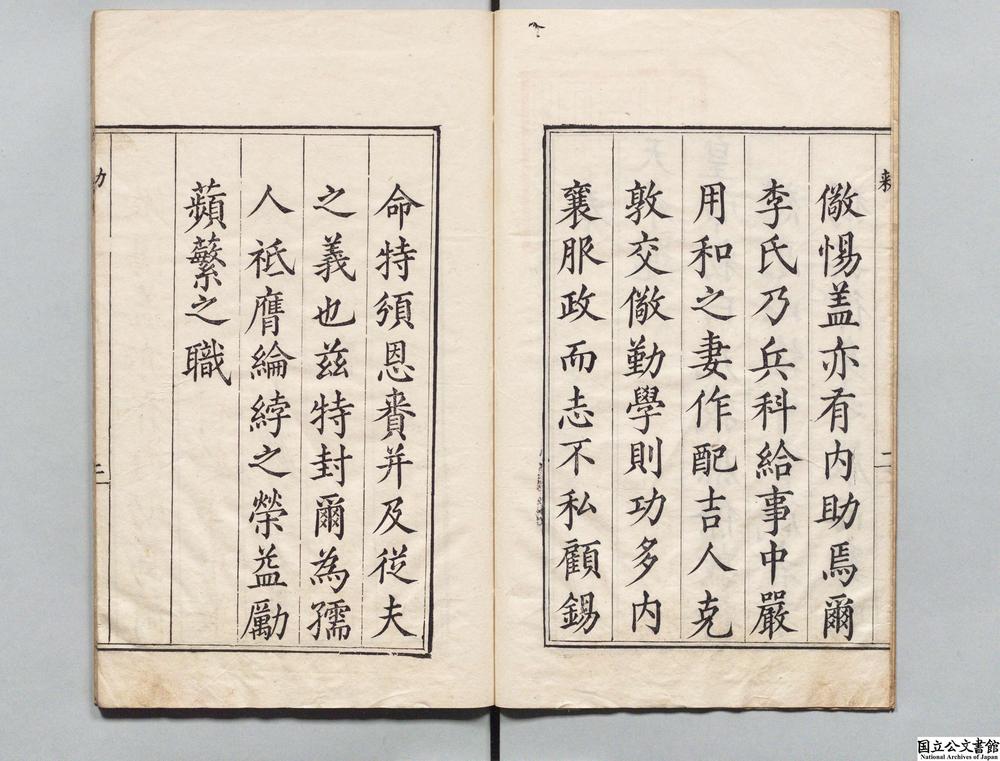 儆惕盖亦有内助焉爾
李氏乃兵科給事中嚴
用和之妻作配吉人克
敦交儆勤學則功多内
襄服政而志不私顧錫
命特頒恩賚并及從夫
之義也兹特封爾為孺
人祗膺綸綍之榮益勵
蘋蘩之職
国立公文書館
National Archives of Japan